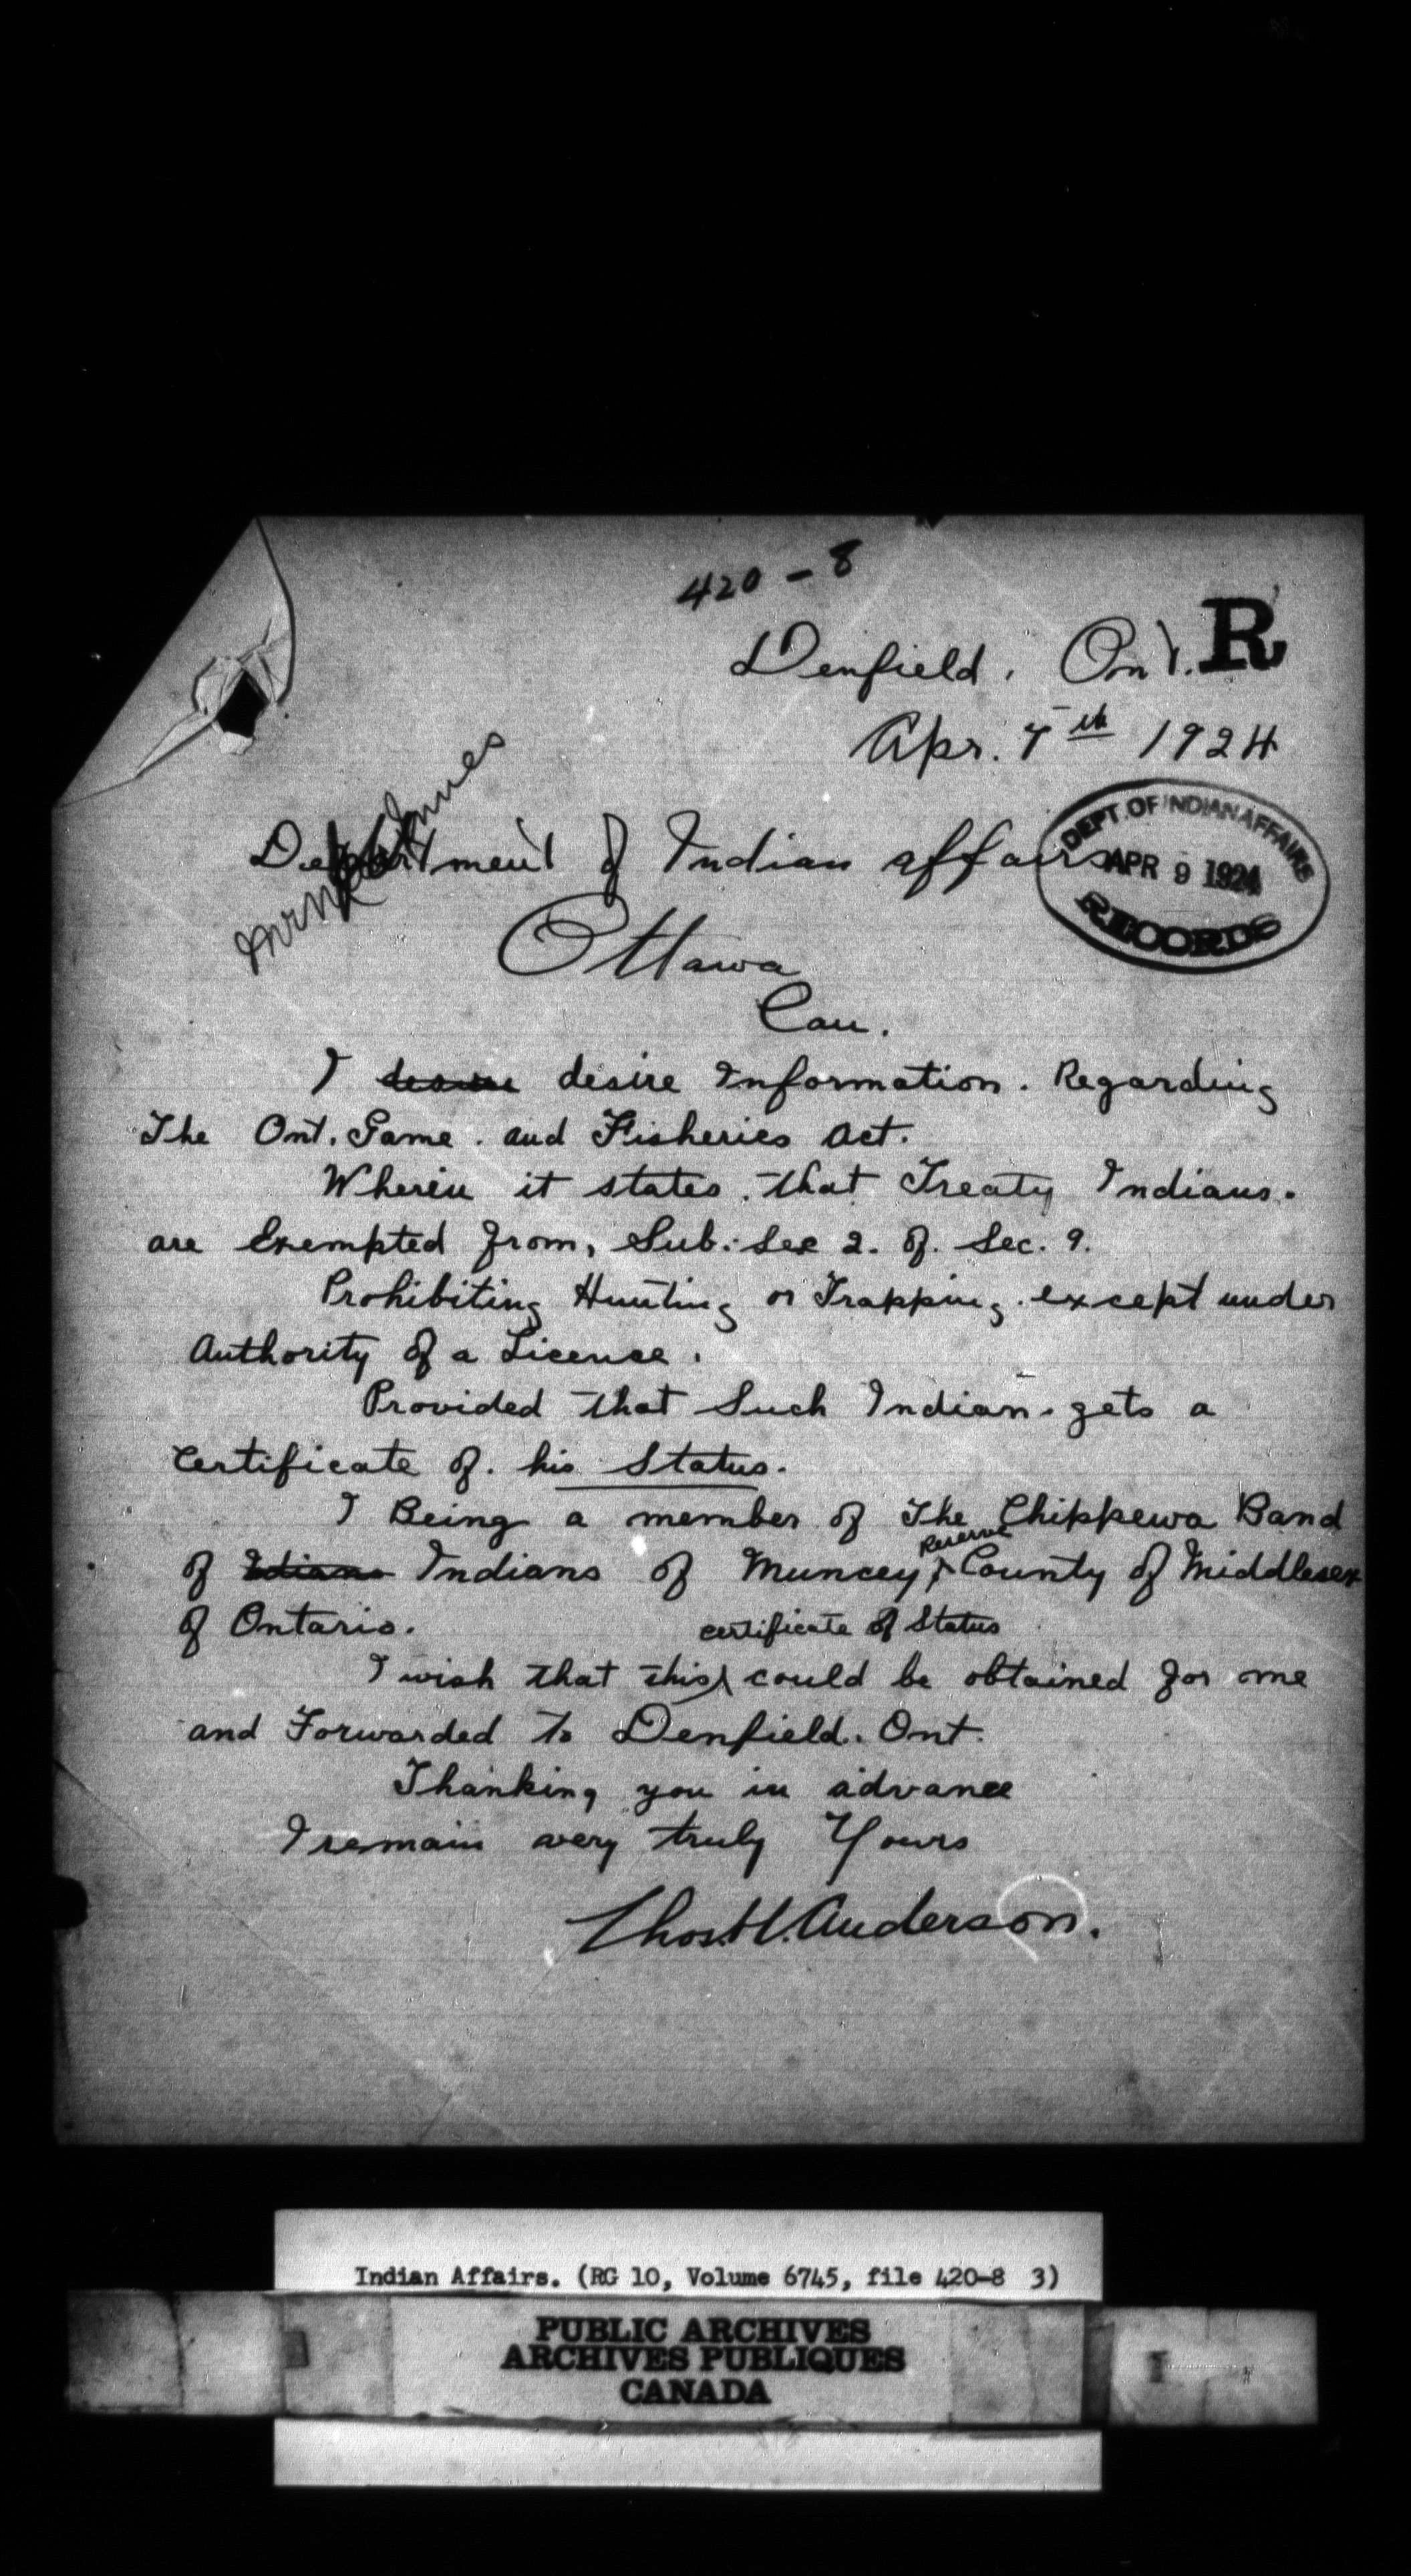 420-8
Denfield, Ont. R
Apr. 7th 1924
Department of Indian affairs
DEPT. OF INDIAN AFFAIRS
APR 9 1924
RECORDS
Ottawa
Can.
I desire desire Information. Regarding
The Ont. Game. and Fisheries Act.
Wherein it states. that Treaty Indians.
are Exempted from, Sub. Sec 2. of. Sec. 9.
Prohibiting Hunting or Trapping. except under
Authority of a License.
Provided that Such Indian. gets a
Certificate of. his Status.
I Being a member of The Chippewa Band
of Idians Indians of Muncey, Reserve County of Middlesex
of Ontario.
I wish that this certificate of Status could be obtained for me
and Forwarded to Denfield. Ont.
Thanking you in advance
I remain very truly Yours
Thos. H. Anderson.
Indian Affairs. (RG 10, Volume 6745, file 420-8 3)
PUBLIC ARCHIVES
ARCHIVES PUBLIQUES
CANADA